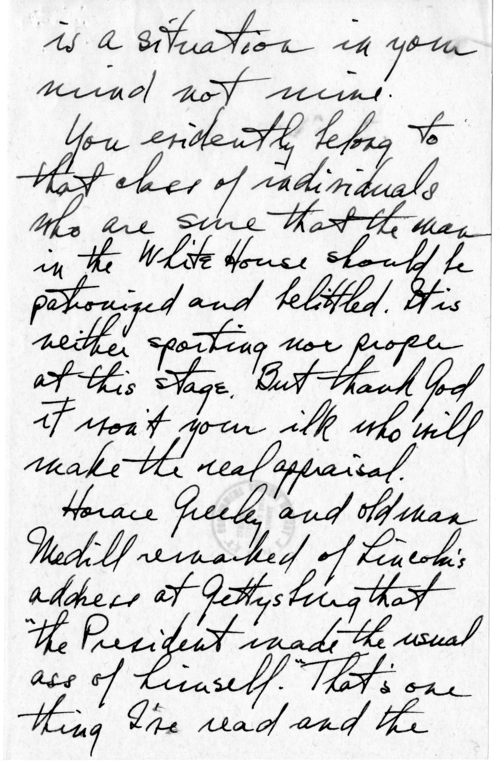 is a situation in your
mind not mine.
You evidently belong to
that class of individuals
who are sure that the man
in the White House should be
patronized and belittled. It is
neither sporting nor proper
at this stage. But thank God
it won't your ilk who will
make the real appraisal.
Horace Greeley and old man
Medill remarked of Lincoln's
address at Gettysburg that
"the President made the usual
ass of himself." That's one
thing I've read and the